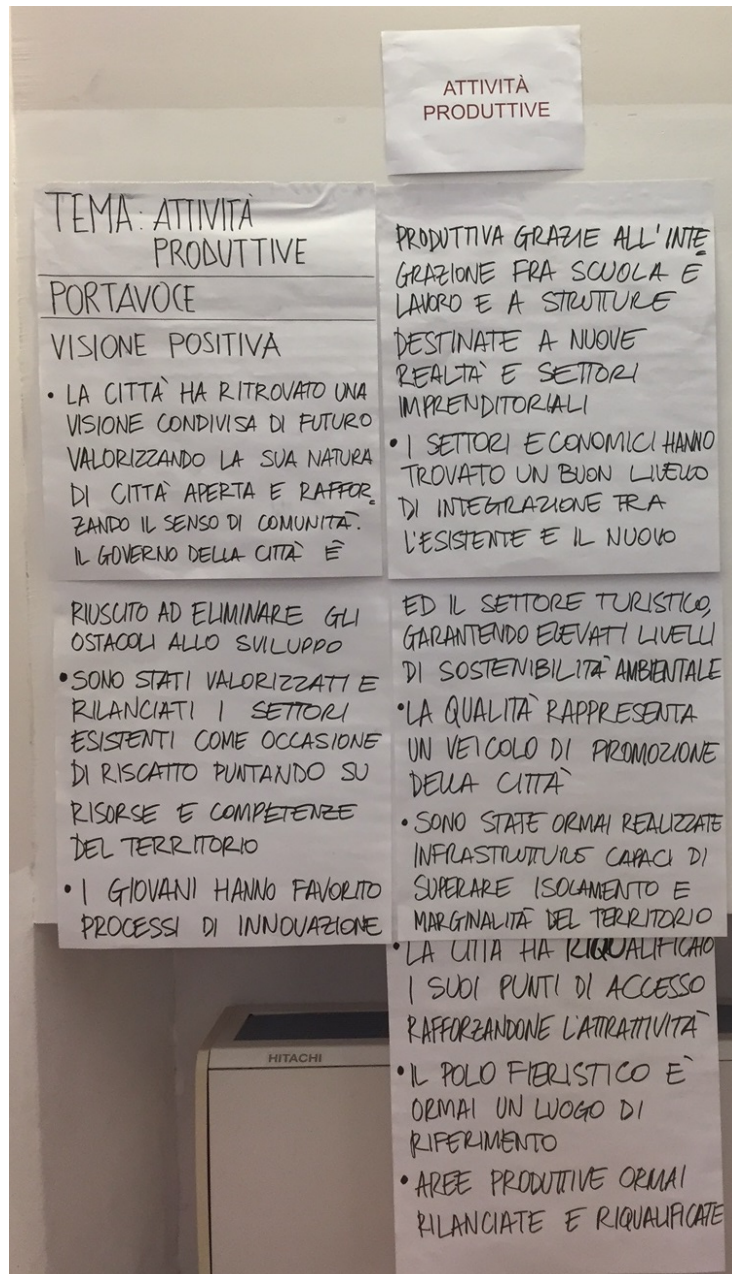 ATTIVITÀ
PRODUTTIVE
TEMA: ATTIVITÀ
PRODUTTIVE
PORTAVOCE
VISIONE POSITIVA
• LA CITTÀ HA RITROVATO UNA
VISIONE CONDIVISA DI FUTURO
VALORIZZANDO LA SUA NATURA
DI CITTÀ APERTA E RAFFOR-
ZANDO IL SENSO DI COMUNITÀ.
IL GOVERNO DELLA CITTÀ È
RIUSCITO AD ELIMINARE GLI
OSTACOLI ALLO SVILUPPO
• SONO STATI VALORIZZATI E
RILANCIATI I SETTORI
ESISTENTI COME OCCASIONE
DI RISCATTO PUNTANDO SU
RISORSE E COMPETENZE
DEL TERRITORIO
• I GIOVANI HANNO FAVORITO
PROCESSI DI INNOVAZIONE
PRODUTTIVA GRAZIE ALL'INTE
GRAZIONE FRA SCUOLA E
LAVORO E A STRUTTURE
DESTINATE A NUOVE
REALTÀ E SETTORI
IMPRENDITORIALI
• I SETTORI ECONOMICI HANNO
TROVATO UN BUON LIVELLO
DI INTEGRAZIONE TRA
L'ESISTENTE E IL NUOVO
ED IL SETTORE TURISTICO,
GARANTENDO ELEVATI LIVELLI
DI SOSTENIBILITÀ AMBIENTALE
• LA QUALITÀ RAPPRESENTA
UN VEICOLO DI PROMOZIONE
DELLA CITTÀ
• SONO STATE ORMAI REALIZZATE
INFRASTRUTTURE CAPACI DI
SUPERARE ISOLAMENTO E
MARGINALITÀ DEL TERRITORIO
• LA CITTÀ HA RIQUALIFICATO
I SUOI PUNTI DI ACCESSO
RAFFORZANDONE L'ATTRATTIVITÀ
• IL POLO FIERISTICO È
ORMAI UN LUOGO DI
RIFERIMENTO
• AREE PRODUTTIVE ORMAI
RILANCIATE E RIQUALIFICATE
HITACHI